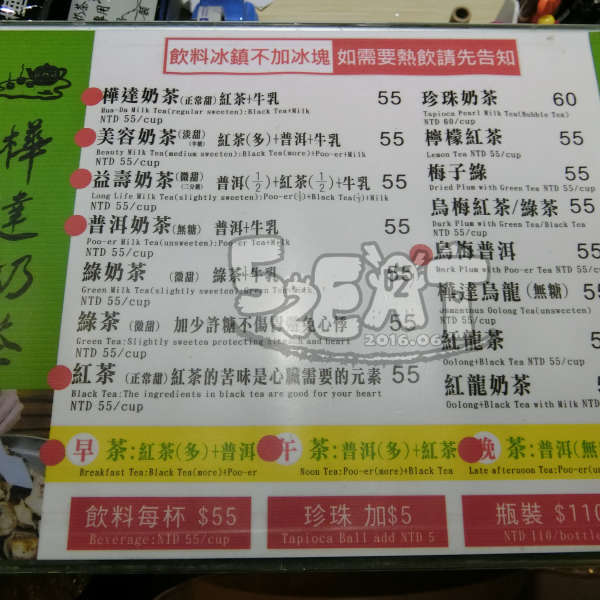 飲料冰鎮不加冰塊 如需要熱飲請先告知
樺達奶茶(正常甜)紅茶+牛乳 55
Hua-Da Milk Tea(regular sweeten):Black Tea+Milk
NTD 55/cup
美容奶茶(淡甜)(半糖) 紅茶(多)+普洱+牛乳 55
Beauty Milk Tea(medium sweeten):Black Tea(more)+Poo-er+Milk
NTD 55/cup
益壽奶茶(微甜)(三分糖) 普洱(1/2)+紅茶(1/2)+牛乳 55
Long Life Milk Tea(slightly sweeten):Poo-er(1/2)+Black Tea(1/2)+Milk
NTD 55/cup
普洱奶茶(無糖) 普洱+牛乳 55
Poo-er Milk Tea(unsweeten):Poo-er Tea+Milk
NTD 55/cup
綠奶茶 (微甜) 綠茶+牛乳 55
Green Milk Tea(slightly sweeten):Green Tea+Milk
NTD 55/cup
綠茶 (微甜) 加少許糖不傷胃避免心悸 55
Green Tea:Slightly sweeten protecting stomach and heart
NTD 55/cup
紅茶 (正常甜)紅茶的苦味是心臟需要的元素 55
Black Tea:The ingredients in black tea are good for your heart
NTD 55/cup
珍珠奶茶 60
Tapioca Pearl Milk Tea(Bubble Tea)
NTD 60/cup
檸檬紅茶 55
Lemon Tea NTD 55/cup
梅子綠 55
Dried Plum with Green Tea NTD 55/cup
烏梅紅茶/綠茶 55
Dark Plum with Black Tea/Green Tea NTD 55/cup
烏梅普洱 55
Dark Plum with Poo-er Tea NTD 55/cup
樺達烏龍 (無糖) 55
Oolong Tea(unsweeten)
NTD 55/cup
紅龍茶
Oolong+Black Tea NTD 55/cup
紅龍奶茶
Oolong+Black Tea with Milk NTD
樺達奶茶
早 茶:紅茶(多)+普洱
Breakfast Tea:Black Tea(more)+Poo-er
午 茶:普洱(多)+紅茶
Noon Tea:Poo-er(more)+Black Tea
晚 茶:普洱(無
Late afternoon Tea:Poo-er(un
飲料每杯 $55
Beverage:NTD 55/cup
珍珠 加$5
Tapioca Ball add NTD 5
瓶裝 $110
NTD 110/bottle
2016.06